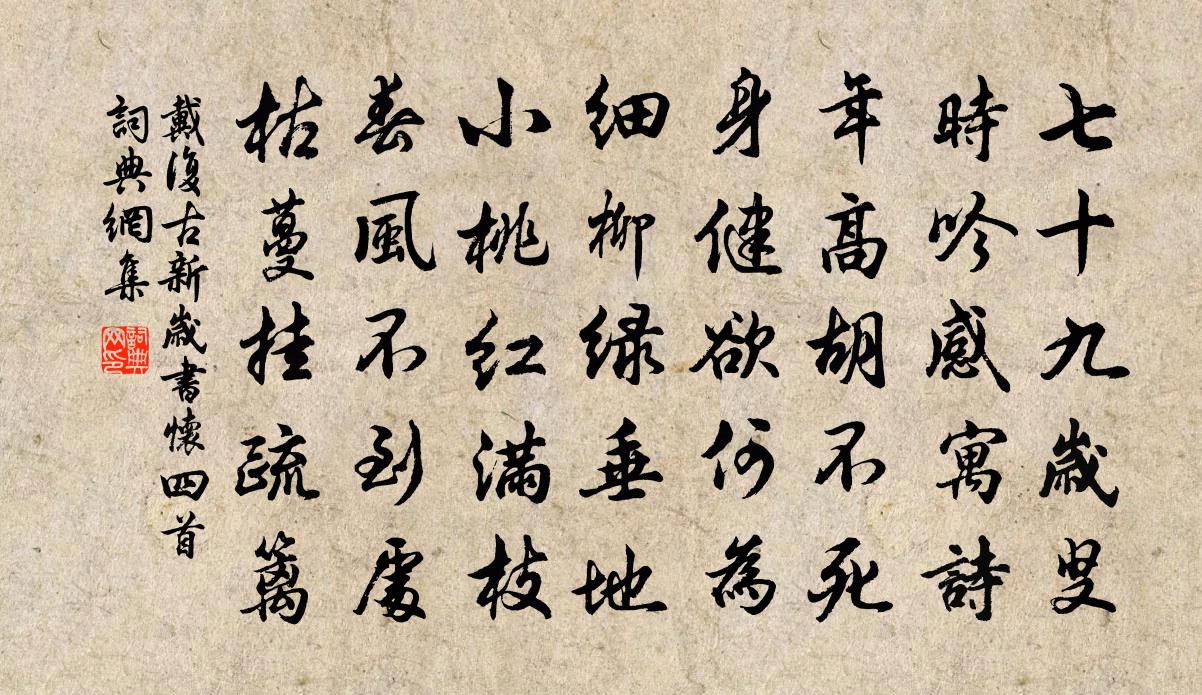 七十九歲叟
時吟感寓詩
年高胡不死
身健欲何為
細柳綠垂地
小桃紅滿枝
春風不到處
枯蔓挂疏籬
戴復古新歲書懷四首
詞典網集
詞典網印